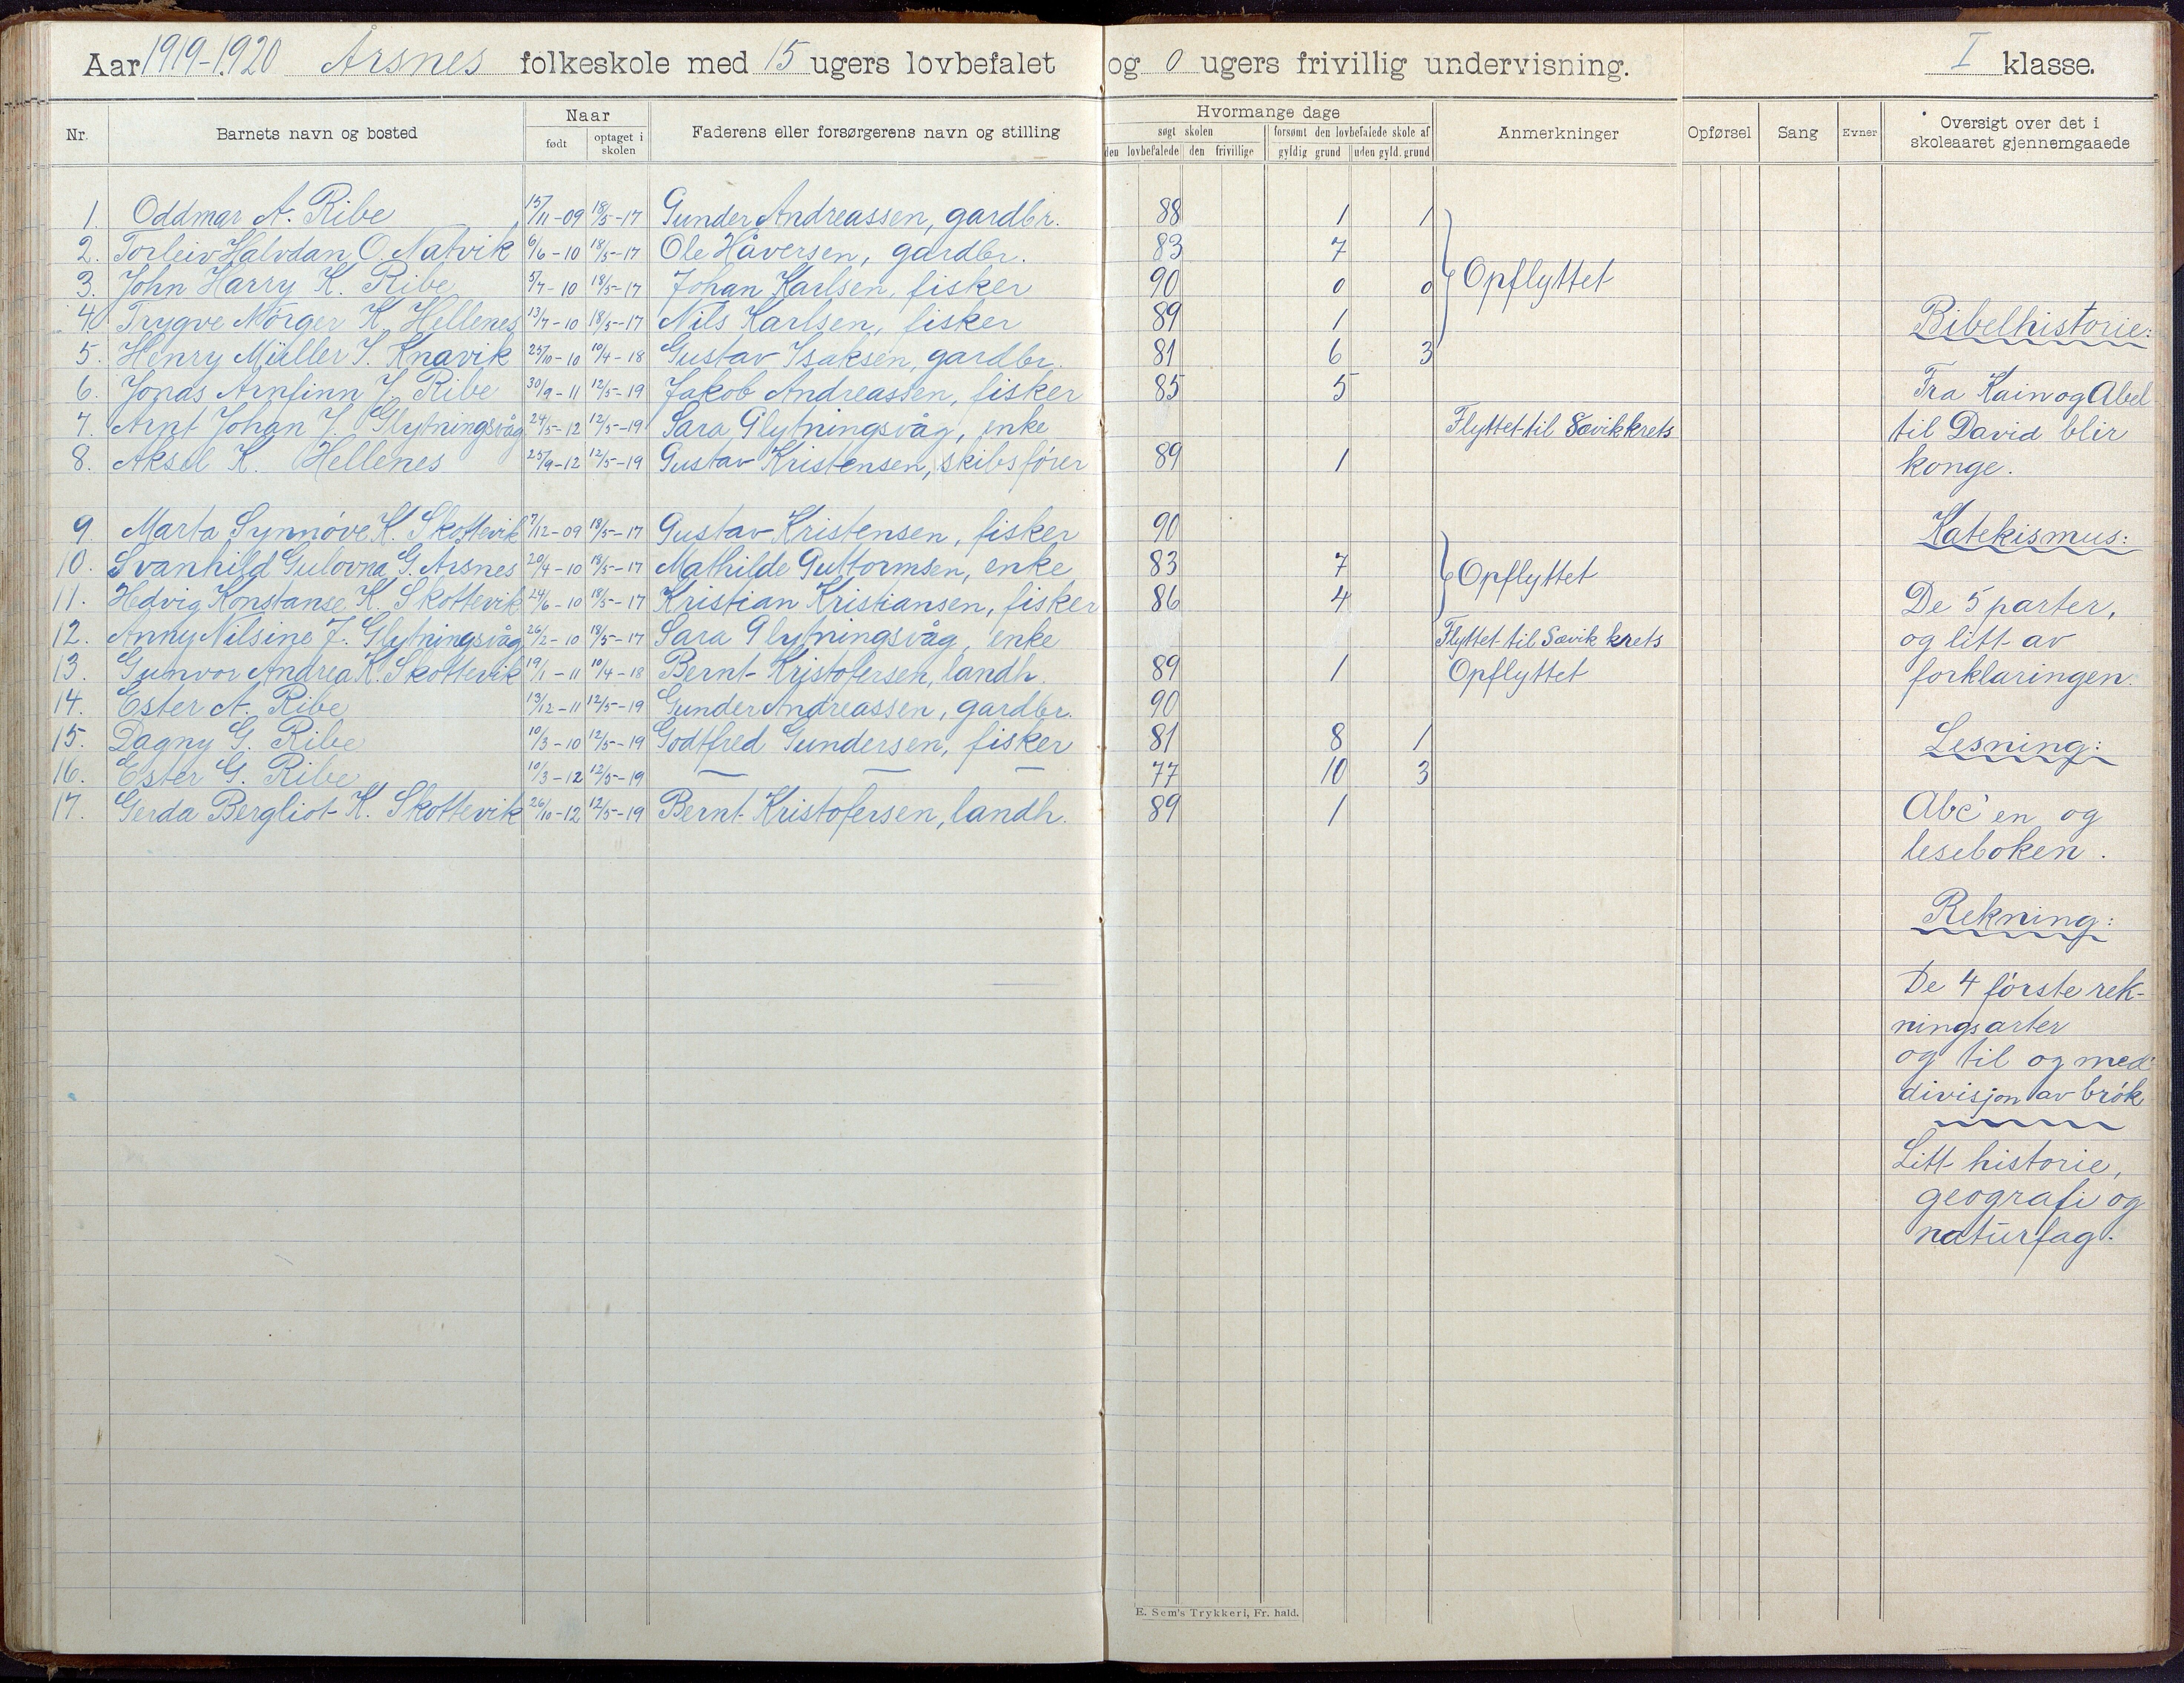 Aar 1919-1920 Årsnes folkeskole med 15 ugers lovbefalet og 0 ugers frivillig undervisning. I klasse.
Nr. Barnets navn og bosted Naar født optaget i skolen Faderens eller forsørgerens navn og stilling Hvormange dage søgt skolen den lovbefalede den frivillige forsømt den lovbefalede skole af gyldig grund uden gyld. grund Anmerkninger Opførsel Sang Evner Oversigt over det i skoleaaret gjennemgaaede
1. Oddmar A. Ribe 15/11-09 18/5-17 Gunder Andreassen, gardbr. 88 1 1
2. Torleiv Halvdan O. Natvik 6/6-10 18/5-17 Ole Håversen, gardbr. 83 7
3. John Harry K. Ribe 5/7-10 18/5-17 Johan Karlsen, fisker 90 0 0 Opflyttet
4. Trygve Mørger K. Hellenes 13/7-10 18/5-17 Nils Karlsen, fisker 89 1
5. Henry Müller I. Knavik 25/10-10 10/4-18 Gustav Isaksen, gardbr. 81 6 3
6. Jonas Arnfinn J. Ribe 30/9-11 12/5-19 Jakob Andreassen, fisker 85 5
7. Arnt Johan J. Glytningsvåg 24/5-12 12/5-19 Sara Glytningsvåg, enke Flyttet til Sævik krets
8. Aksel K. Hellenes 25/9-12 12/5-19 Gustav Kristensen, skibsfører 89 1
9. Marta Synnøve K. Skottevik 7/12-09 18/5-17 Gustav Kristensen, fisker 90
10. Svanhild Gulovna G. Årsnes 20/4-10 18/5-17 Mathilde Guttormsen, enke 83 7 Opflyttet
11. Hedvig Konstanse K. Skottevik 24/6-10 18/5-17 Kristian Kristiansen, fisker 86 4
12. Anny Nilsine J. Glytningsvåg 26/2-10 18/5-17 Sara Glytningsvåg, enke Flyttet til Sævik krets
13. Gunvor Andrea K. Skottevik 19/1-11 10/4-18 Bernt Kristofersen, landh. 89 1 Opflyttet
14. Ester A. Ribe 13/12-11 12/5-19 Gunder Andreassen, gardbr. 90
15. Dagny G. Ribe 10/3-10 12/5-19 Godtfred Gundersen, fisker 81 8 1
16. Ester G. Ribe 10/3-12 12/5-19 — — — 77 10 3
17. Gerda Bergliot K. Skottevik 26/10-12 12/5-19 Bernt Kristofersen, landh. 89 1
Bibelhistorie:
Fra Kain og Abel
til David blir
konge.
Katekismus:
De 5 parter,
og litt av
forklaringen.
Lesning:
Abc'en og
leseboken.
Rekning:
De 4 første rek-
ningsarter
og til og med
divisjon av brøk
Litt historie,
geografi og
naturfag.
E. Sem's Trykkeri, Fr. hald.